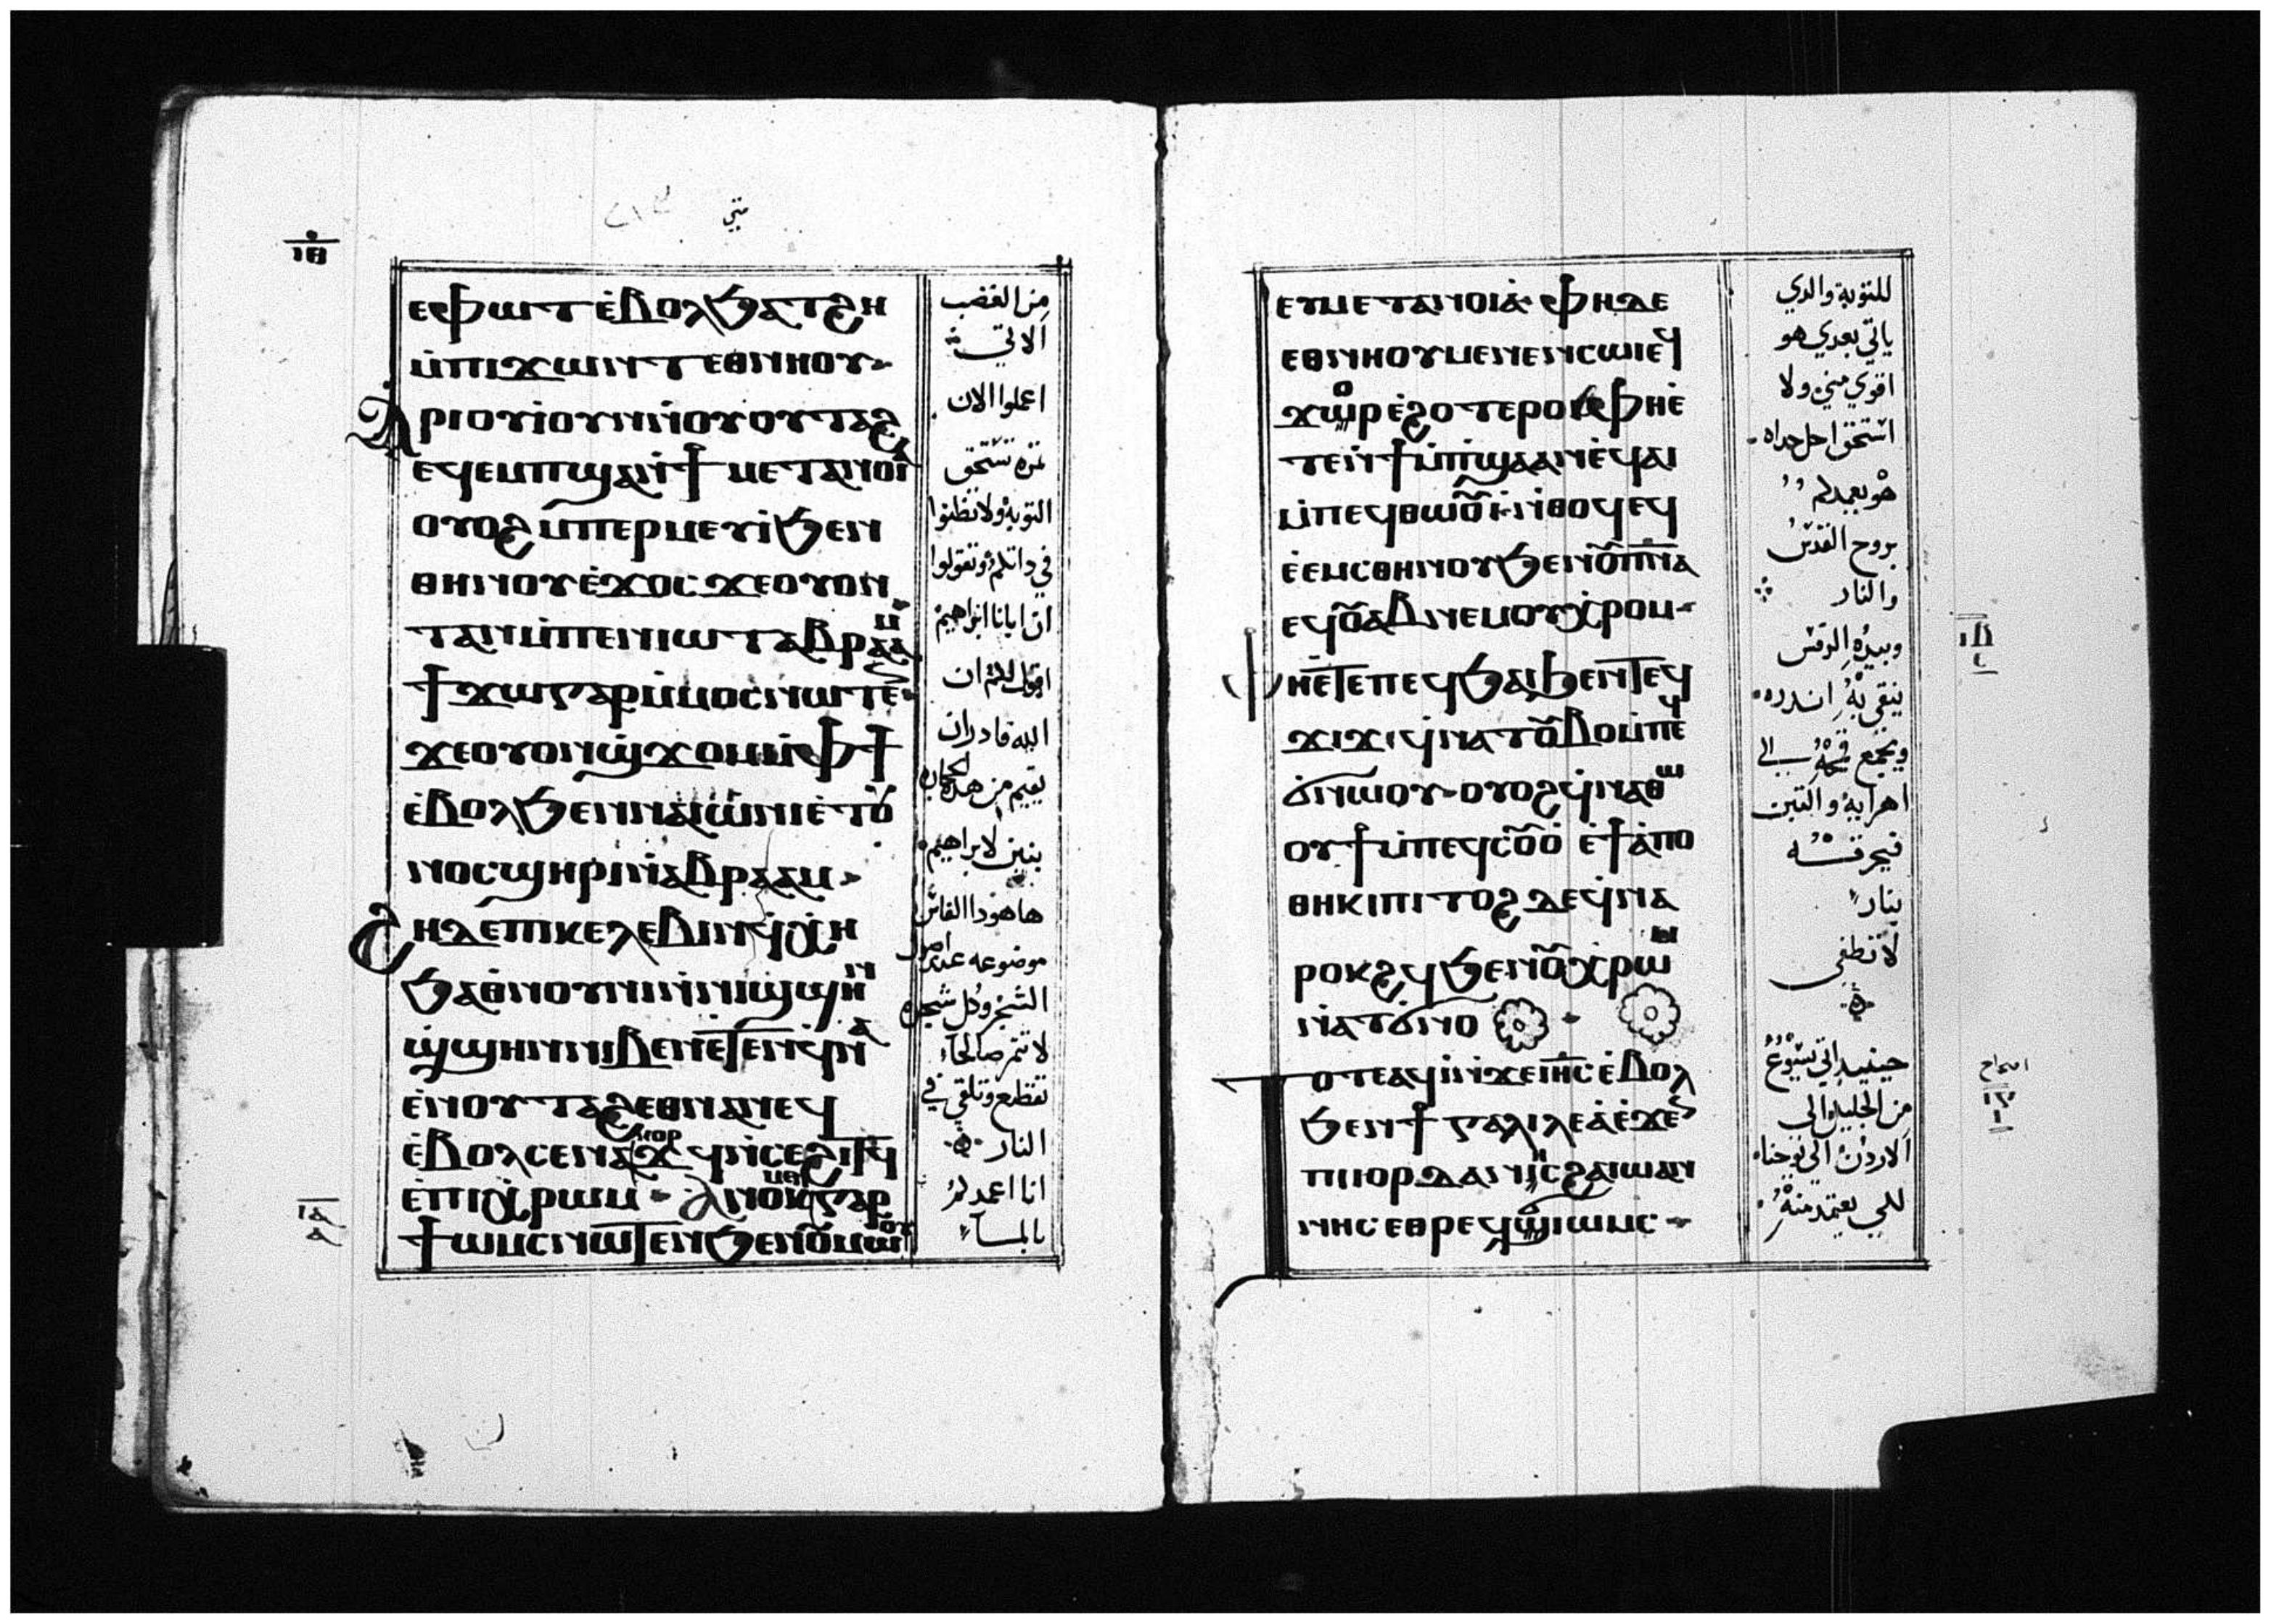 متي
ⲓⲑ
ⲉⲫⲱⲧ ⲉ̀ⲃⲟⲗϧⲁⲧϩⲏ
ⲙ̀ⲡⲓϫⲱⲛⲧ ⲉⲑⲛⲏⲟⲩ
ⲁⲣⲓⲟⲩⲓ̀ ⲟⲩⲛ ⲛ̀ⲟⲩⲟⲩⲧⲁϩ
ⲉϥⲉⲙⲡϣⲁ ⲛ̀ϯⲙⲉⲧⲁⲛⲟⲓⲁ̀
ⲟⲩⲟϩ ⲙ̀ⲡⲉⲣⲙⲉⲩⲓ̀ ϧⲉⲛ
ⲑⲏⲛⲟⲩ ⲉ̀ϫⲟⲥ ϫⲉ ⲟⲩⲟⲛ
ⲧⲁⲛ ⲙ̀ⲡⲉⲛⲓⲱⲧ ⲁⲃⲣⲁⲁⲙ
ϯϫⲱ ⲅⲁⲣ ⲙ̀ⲙⲟⲥ ⲛⲱⲧⲉⲛ
ϫⲉ ⲟⲩⲟⲛϣϫⲟⲙ ⲙ̀ⲫϯ
ⲉ̀ⲃⲟⲗϧⲉⲛ ⲛⲁⲓⲱ̀ⲛⲓ ⲉ̀ⲧⲟⲩ
ⲛⲟⲥ ϣⲏⲣⲓ ⲛ̀ⲁⲃⲣⲁⲁⲙ
ϩⲏⲇⲉ ⲡⲓⲕⲉⲗⲉⲃⲓⲛ ϥ̀ⲭⲏ
ϧⲁⲑⲛⲟⲩⲛⲓ ⲛ̀ⲛⲓϣϣⲏⲛ
ϣ̀ϣⲏⲛ ⲛⲓⲃⲉⲛ ⲉⲧⲉⲛϥ̀ⲛⲁ
ⲉ̀ⲛⲟⲩⲧⲁϩ ⲉⲑⲛⲁⲛⲉϥ
ⲉ̀ⲃⲟⲗ ⲥⲉⲛⲁⲕⲟⲣϫϥ ⲛ̀ⲥⲉϩⲓⲧϥ
ⲉ̀ⲡⲓⲭ̀ⲣⲱⲙ ⲁⲛⲟⲕ ⲙⲉⲛ ⲅⲁⲣ
ϯⲱⲙⲥ ⲛⲱⲧⲉⲛ ϧⲉⲛ ⲟⲩⲙⲱⲟⲩ
من الغضب
الاتي
اعملوا الان
ثمره تستحق
التوبه ولا تظنوا
في ذاتكم وتقولوا
ان ابانا ابراهيم
اقول لكم ان
الله قادر ان
يقيم من هذه الحجاره
بنين لابراهيم
ها هوذا الفاس
موضوعه عند اصول
الشجر وكل شجره
لا تثمر صالحا
تقطع وتلقي في
النار
انا اعمدكم
بالمـاء
ⲓⲁ
ⲁ
ⲉⲩⲙⲉⲧⲁⲛⲟⲓⲁ̀ ⲫⲏ ⲇⲉ
ⲉⲑⲛⲏⲟⲩ ⲙⲉⲛⲉⲛⲥⲱⲓ ⲉϥ
ϫⲱⲣ ⲉ̀ϩⲟⲧⲉⲣⲟⲓ ⲫⲏ ⲉ̀
ⲧⲉⲛ̀ϯⲙ̀ⲡϣⲁ ⲁⲛ ⲉ̀ϥⲁⲓ
ⲙ̀ⲡⲉϥⲑⲱⲟⲩⲓ̀ ⲛ̀ⲑⲟϥ ⲉϥ
ⲉ̀ⲉⲙⲥ ⲑⲏⲛⲟⲩ ϧⲉⲛ ⲟⲩⲡⲛⲁ
ⲉϥⲟⲩⲁⲃ ⲛⲉⲙ ⲟⲩⲭ̀ⲣⲟⲙ
ⲫⲏ ⲉ̀ⲧⲉ ⲡⲉϥϧⲁⲓ ϧⲉⲛ ⲧⲉϥ
ϫⲓϫ ϥ̀ⲛⲁⲧⲟⲩⲃⲟ ⲙ̀ⲡⲉϥ
ϭ̀ⲛⲱⲟⲩ ⲟⲩⲟϩ ϥ̀ⲛⲁⲑⲱ
ⲟⲩϯ ⲙ̀ⲡⲉϥⲥⲟⲩⲟ̀ ⲉ̀ϯⲁ̀ⲡⲟ
ⲑⲏⲕⲓ ⲡⲓⲧⲟϩ ⲇⲉ ϥ̀ⲛⲁ
ⲣⲟⲕϩϥ ϧⲉⲛ ⲟⲩⲭ̀ⲣⲱⲙ
ⲛ̀ⲁⲧϭⲛⲟ
ⲧⲟⲧⲉ ⲁϥⲓ̀ ⲛ̀ϫⲉ ⲓⲏⲥ ⲉ̀ⲃⲟⲗ
ϧⲉⲛ ϯⲅⲁⲗⲓⲗⲉⲁ̀ ⲉ̀ϫⲉⲛ
ⲡⲓⲓⲟⲣⲇⲁⲛⲏⲥ ϩⲁ ⲓⲱⲁⲛ
ⲛⲏⲥ ⲉⲑⲣⲉϥϭⲓⲱⲙⲥ
للتوبة والذي
ياتي بعدي هو
اقوي مني ولا
استحق احل حداه
هو يعمدكم
بروح القدس
والنار
وبيده الرفش
ينقي به اندره
ويجمع قمحه الي
اهرايه والتبن
فيحرقـه
بنار
لا تطفي
حينيذ اتي يسوع
من الجليل الى
الاردن الي يوحنا
لكي يعتمد منه
ⲓⲃ
اصحاح